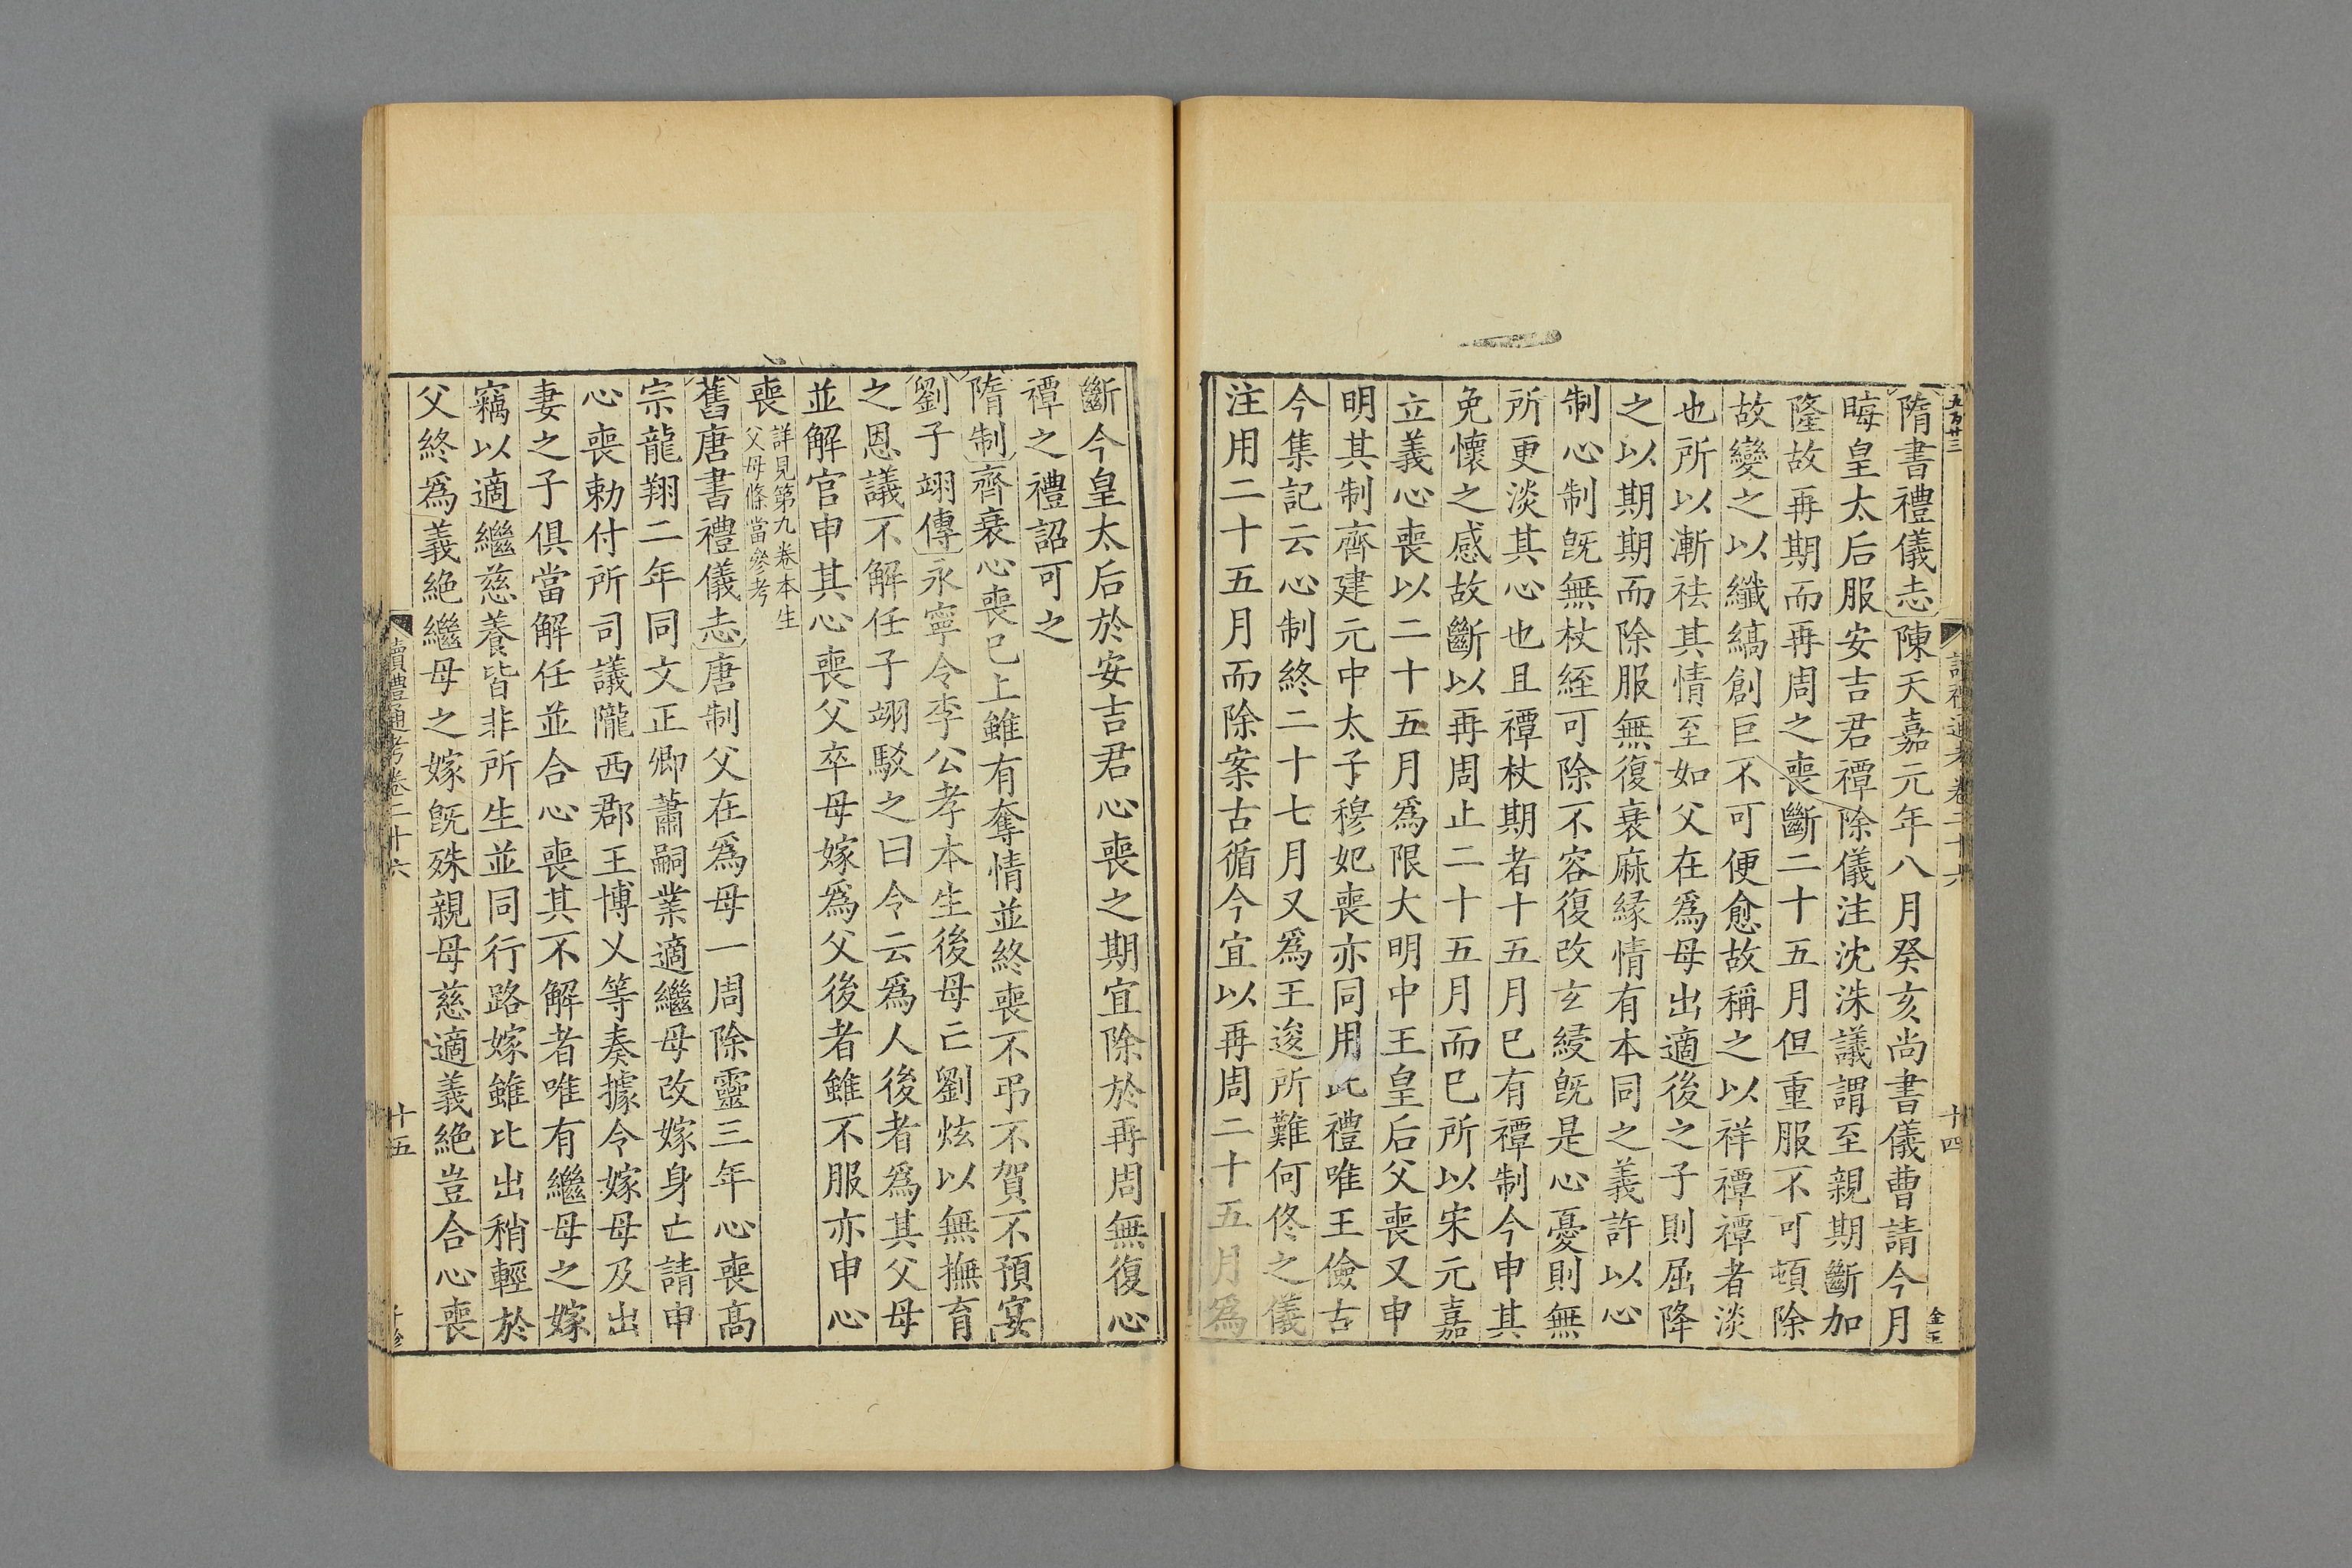 隋書禮儀志陳天嘉元年八月癸亥尚書儀曹請今月
晦皇太后服安吉君禫除儀注沈洙議謂至親期斷加
隆故再期而再周之喪斷二十五月但重服不可頓除
故變之以纖縞創巨不可便愈故稱之以祥禫禫者淡
也所以漸祛其情至如父在爲母出適後之子則屈降
之以期期而除服無復衰麻緣情有本同之義許以心
制心制旣無杖絰可除不容復改玄綅旣是心憂則無
所更淡其心也且禫杖期者十五月已有禫制今申其
免懷之感故斷以再周止二十五月而已所以宋元嘉
立義心喪以二十五月爲限大明中王皇后父喪又申
明其制齊建元中太子穆妃喪亦同用此禮唯王儉古
今集記云心制終二十七月又爲王逡所難何佟之儀
注用二十五月而除案古循今宜以再周二十五月爲
斷今皇太后於安吉君心喪之期宜除於再周無復心
禫之禮詔可之
隋制齊衰心喪已上雖有奪情並終喪不弔不賀不預宴
劉子翊傳永寧令李公孝本生後母亡劉炫以無撫育
之恩議不解任子翊駁之曰今云爲人後者爲其父母
並解官申其心喪父卒母嫁爲父後者雖不服亦申心
喪詳見第九卷本生
父母條當參考
舊唐書禮儀志唐制父在爲母一周除靈三年心喪高
宗龍翔二年同文正卿蕭嗣業適繼母改嫁身亡請申
心喪勅付所司議隴西郡王博乂等奏據令嫁母及出
妻之子俱當解任並合心喪其不解者唯有繼母之嫁
竊以適繼慈養皆非所生並同行路嫁雖比出稍輕於
父終爲義絕繼母之嫁旣殊親母慈適義絕豈合心喪
讀禮通考卷二十六
十五